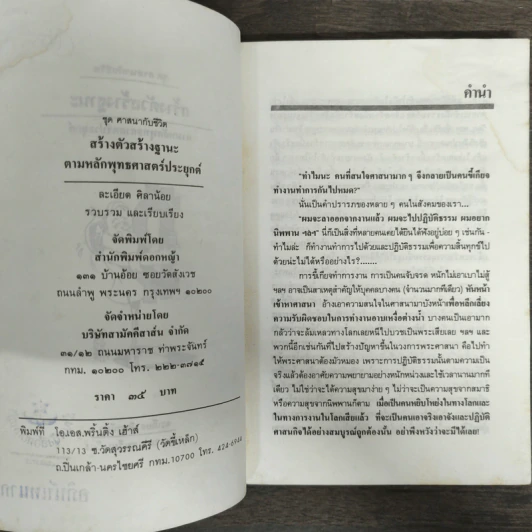 ชุด ศาสนากับชีวิต
สร้างตัวสร้างฐานะ
ตามหลักพุทธศาสตร์ประยุกต์
ละเอียด ศิลาน้อย
รวบรวม และเรียบเรียง
จัดพิมพ์โดย
สำนักพิมพ์ดอกหญ้า
๑๓๑ บ้านอ้อย ซอยวัดสังเวช
ถนนลำพู พระนคร กรุงเทพฯ ๑๐๒๐๐
จัดจำหน่ายโดย
บริษัทสามัคคีสาส์น จำกัด
๓๑/๑๒ ถนนมหาราช ท่าพระจันทร์
กทม. ๑๐๒๐๐ โทร. ๒๒๒-๓๗๑๔
ราคา ๓๕ บาท
พิมพ์ที่ โอ.เอส.พริ้นติ้ง เฮ้าส์
113/13 ซ.วัดสุวรรณคีรี (วัดขี้เหล็ก)
ถ.ปิ่นเกล้า-นครไชยศรี กทม.10700 โทร. 424-6944
คำนำ
"ทำไมนะ คนที่สนใจศาสนามาก ๆ จึงกลายเป็นคนขี้เกียจ
ทำงานทำการกันไปหมด?"
นั่นเป็นคำปรารภของหลาย ๆ คนในสังคมของเรา...
"ผมจะลาออกจากงานแล้ว ผมจะไปปฏิบัติธรรม ผมอยาก
นิพพาน ฯลฯ" นี่ก็เป็นสิ่งที่หลายคนเคยได้ยินได้ฟังอยู่บ่อย ๆ เช่นกัน -
ทำไมล่ะ ก็ทำงานทำการไปด้วยและปฏิบัติธรรมเพื่อความสิ้นทุกข์ไป
ด้วยนะไม่ได้หรืออย่างไร?.......
การขี้เกียจทำการงาน การเป็นคนจับจรด หนักไม่เอาเบาไม่สู้
ฯลฯ อาจเป็นสาเหตุสำคัญให้บุคคลบางคน (จำนวนมากทีเดียว) หันหน้า
เข้าหาศาสนา อ้างเอาความสนใจในศาสนามาบังหน้าเพื่อหลีกเลี่ยง
ความรับผิดชอบในการทำงานอาบเหงื่อต่างน้ำ บางคนเป็นเอามาก
กลัวว่าจะล้มเหลวทางโลกเลยหนีไปบวชเป็นพระเสียเลย ฯลฯ และ
พวกนี้อีกเช่นกันที่ไปสร้างปัญหาขึ้นในวงการพระศาสนา คือไปทำ
ให้พระศาสนาต้องมัวหมอง เพราะการปฏิบัติธรรมนั้นตามความเป็น
จริงแล้วต้องอาศัยความพยายามอย่างหนักหน่วงและใช้เวลานานมากที
เดียว ไม่ใช่ว่าจะได้ความสุขมาง่าย ๆ ไม่ว่าจะเป็นความสุขจากสมาธิ
หรือความสุขจากนิพพานก็ตาม เมื่อเป็นคนหยิบโหย่งในทางโลกและ
ในทางการงานในโลกเสียแล้ว ที่จะเป็นคนเอาจริงเอาจังและปฏิบัติ
ศาสนกิจได้อย่างสมบูรณ์ถูกต้องนั้น อย่าพึงหวังว่าจะมีได้เลย!